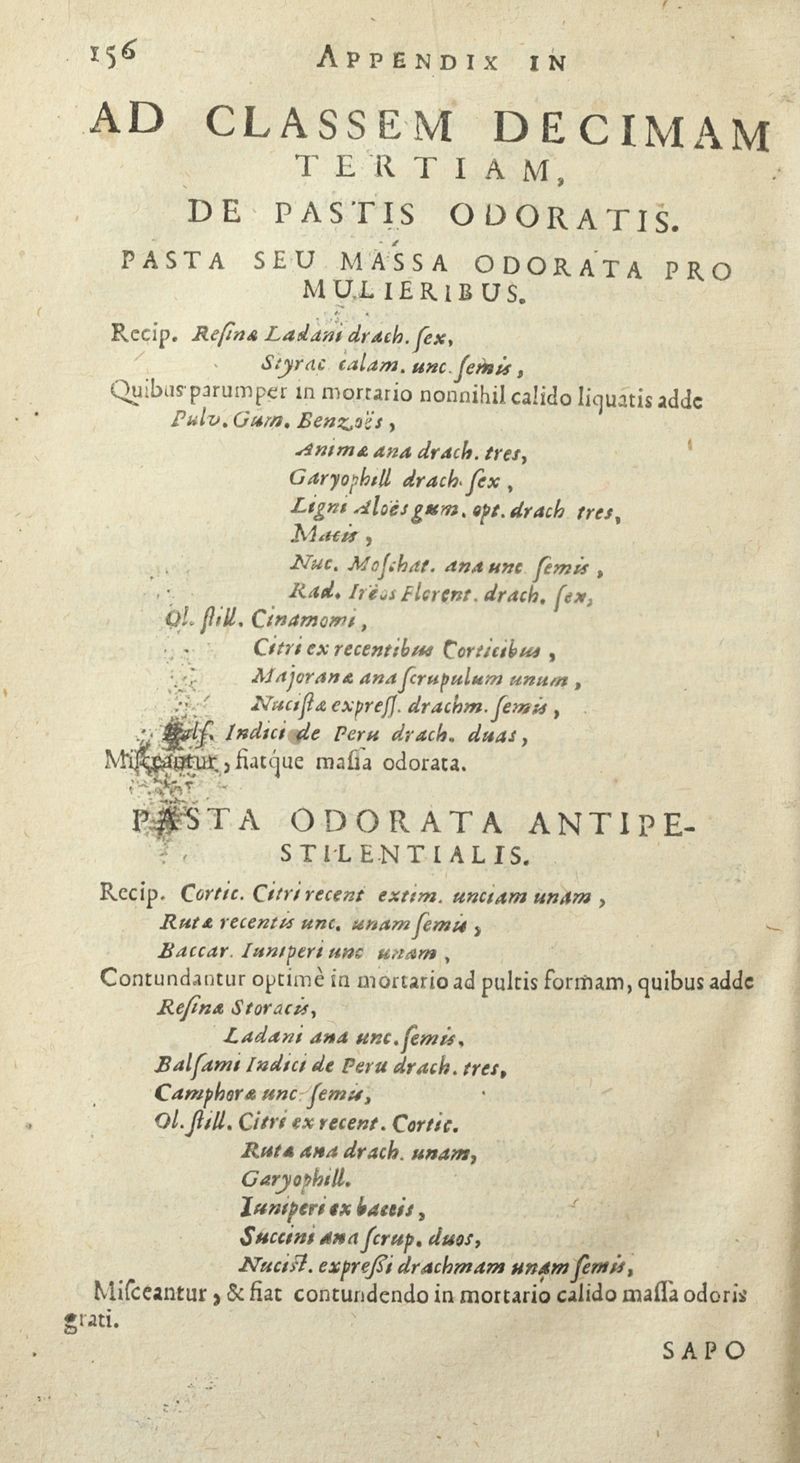 156 APPENDIX IN
AD CLASSEM DECIMAM
TERTIAM,
DE PASTIS ODORATIS.
PASTA SEU MASSA ODORATA PRO
MULIERIBUS.
Recip. Reſinæ Ladani drach. ſex,
Styrac calam. unc. ſemis,
Quibus parumper in mortario nonnihil calido liquatis adde
Pulv. Gum. Benzoës,
Animæ ana drach. tres,
Garyophill drach. ſex,
Ligni Aloës gum. opt. drach tres,
Macis,
Nuc. Moſchat. ana unc ſemis,
Rad. Ireos Florent. drach. ſex,
Ol. ſtill. Cinamomi,
Citri ex recentibus Corticibus,
Majoranæ ana ſcrupulum unum,
Nuciſtæ expreſſ. drachm. ſemis,
Balſ. Indici de Peru drach. duas,
Miſceantur, fiatque maſſa odorata.
PASTA ODORATA ANTIPE-
STILENTIALIS.
Recip. Cortic. Citri recent extim. unciam unam,
Rutæ recentis unc. unam ſemis,
Baccar. Iuniperi unc unam,
Contundantur optimè in mortario ad pultis formam, quibus adde
Reſinæ Storacis,
Ladani ana unc. ſemis,
Balſami Indici de Peru drach. tres,
Camphoræ unc. ſemis,
Ol. ſtill. Citri ex recent. Cortic.
Rutæ ana drach. unam,
Garyophill.
Iuniperi ex baccis,
Succini ana ſcrup. duos,
Nuciſt. expreſſi drachmam unam ſemis,
Miſceantur, & fiat contundendo in mortario calido maſſa odoris
grati.
SAPO